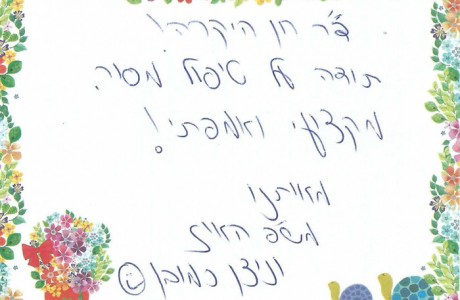 ד"ר חן היקרה!
תודה על טיפול מסור,
מקצועי ואמפתי!
מאיתנו
משפ' האיז
וניצן כמובן